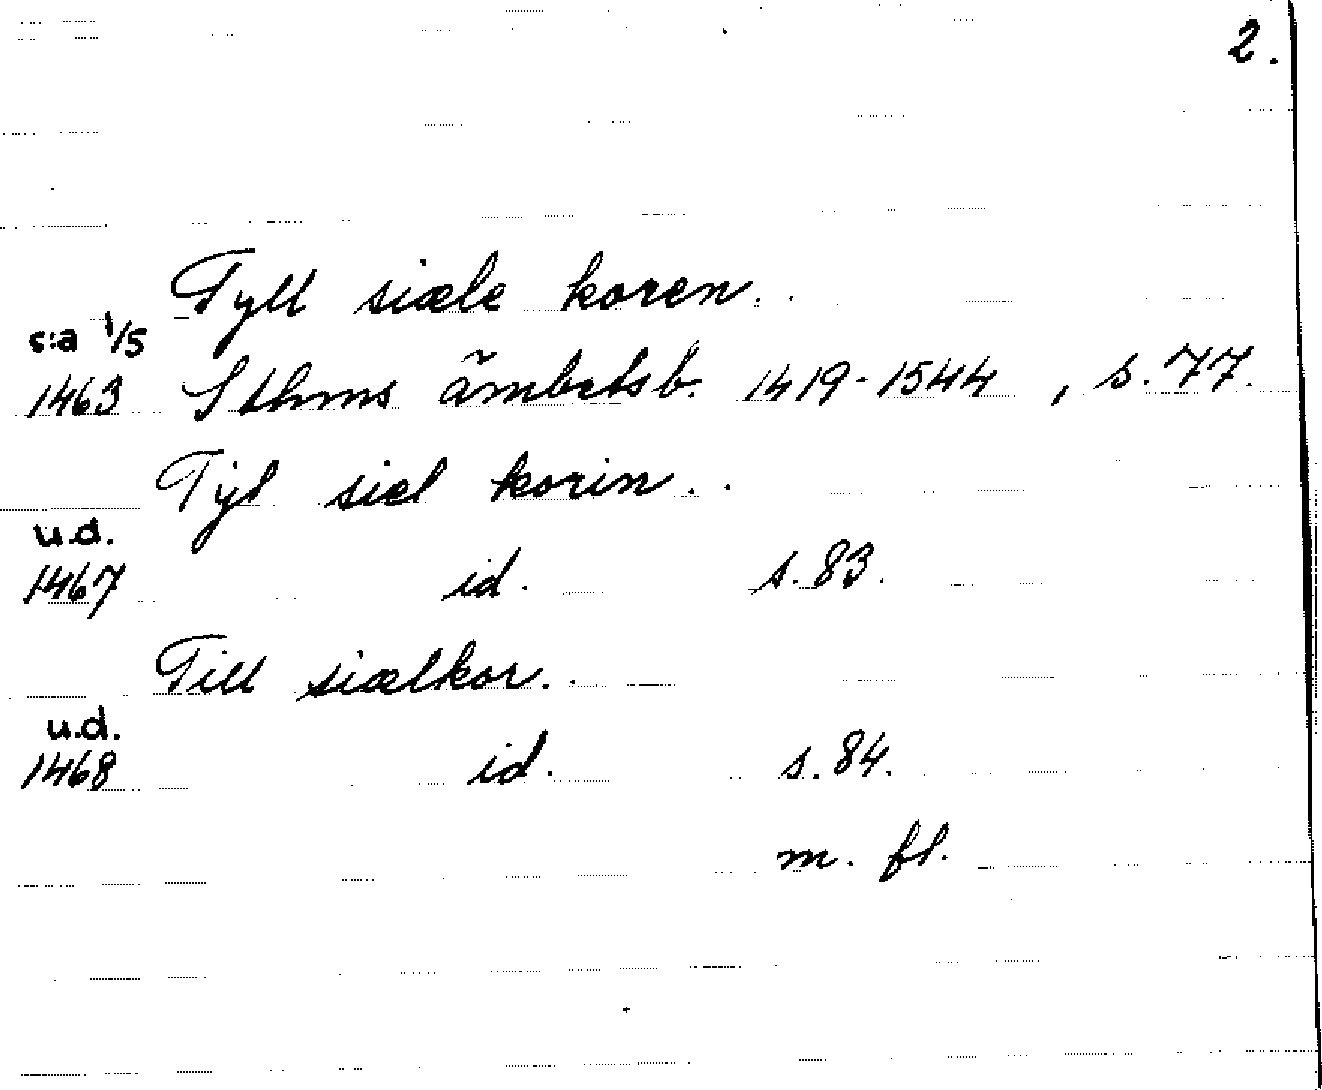 2.
Tyll siæle koren..
s:a 1/5
1463 Sthms ämbetsb. 1419-1544, s. 77.
Tyl siel korin..
u.d.
1467 id. s. 83.
Till siælkor..
u.d.
1468 id. s. 84.
m. fl.